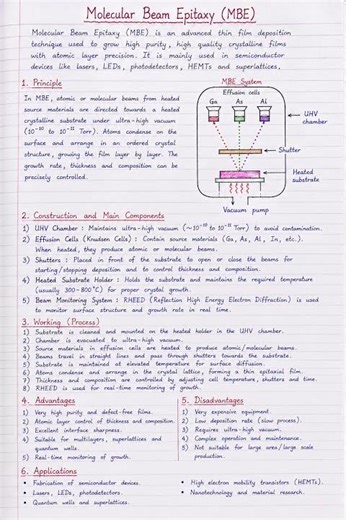 Molecular Beam Epitaxy (MBE)
Molecular Beam Epitaxy (MBE) is an advanced thin film deposition
technique used to grow high purity, high quality crystalline films
with atomic layer precision. It is mainly used in semiconductor
devices like lasers, LEDs, photodetectors, HEMTs and superlattices.
1. Principle
In MBE, atomic or molecular beams from heated
source materials are directed towards a heated
crystalline substrate under ultra-high vacuum
(10⁻¹⁰ to 10⁻¹¹ Torr). Atoms condense on the
surface and arrange in an ordered crystal
structure, growing the film layer by layer. The
growth rate, thickness and composition can be
precisely controlled.
MBE System
Effusion cells
Ga As Al
UHV
chamber
Shutter
Heated
substrate
Vacuum pump
2. Construction and Main Components
1) UHV Chamber : Maintains ultra-high vacuum (~10⁻¹⁰ to 10⁻¹¹ Torr) to avoid contamination.
2) Effusion Cells (Knudsen Cells) : Contain source materials (Ga, As, Al, In, etc.).
When heated, they produce atomic or molecular beams.
3) Shutters : Placed in front of the substrate to open or close the beams for
starting/stopping deposition and to control thickness and composition.
4) Heated Substrate Holder : Holds the substrate and maintains the required temperature
(usually 500-800°C) for proper crystal growth.
5) Beam Monitoring System : RHEED (Reflection High Energy Electron Diffraction) is used
to monitor surface structure and growth rate in real time.
3. Working (Process)
1) Substrate is cleaned and mounted on the heated holder in the UHV chamber.
2) Chamber is evacuated to ultra-high vacuum.
3) Source materials in effusion cells are heated to produce atomic/molecular beams.
4) Beams travel in straight lines and pass through shutters towards the substrate.
5) Substrate is maintained at elevated temperature for surface diffusion.
6) Atoms condense and arrange in the crystal lattice, forming a thin epitaxial film.
7) Thickness and composition are controlled by adjusting cell temperature, shutters and time.
8) RHEED is used for real-time monitoring of growth.
4. Advantages
1) Very high purity and defect-free films.
2) Atomic layer control of thickness and composition.
3) Excellent interface sharpness.
4) Suitable for multilayers, superlattices and
quantum wells.
5) Real-time monitoring of growth.
5. Disadvantages
1) Very expensive equipment.
2) Low deposition rate (slow process).
3) Requires ultra-high vacuum.
4) Complex operation and maintenance.
5) Not suitable for large area/large scale
production.
6. Applications
• Fabrication of semiconductor devices.
• Lasers, LEDs, photodetectors.
• Quantum wells and superlattices.
• High electron mobility transistors (HEMTs).
• Nanotechnology and material research.